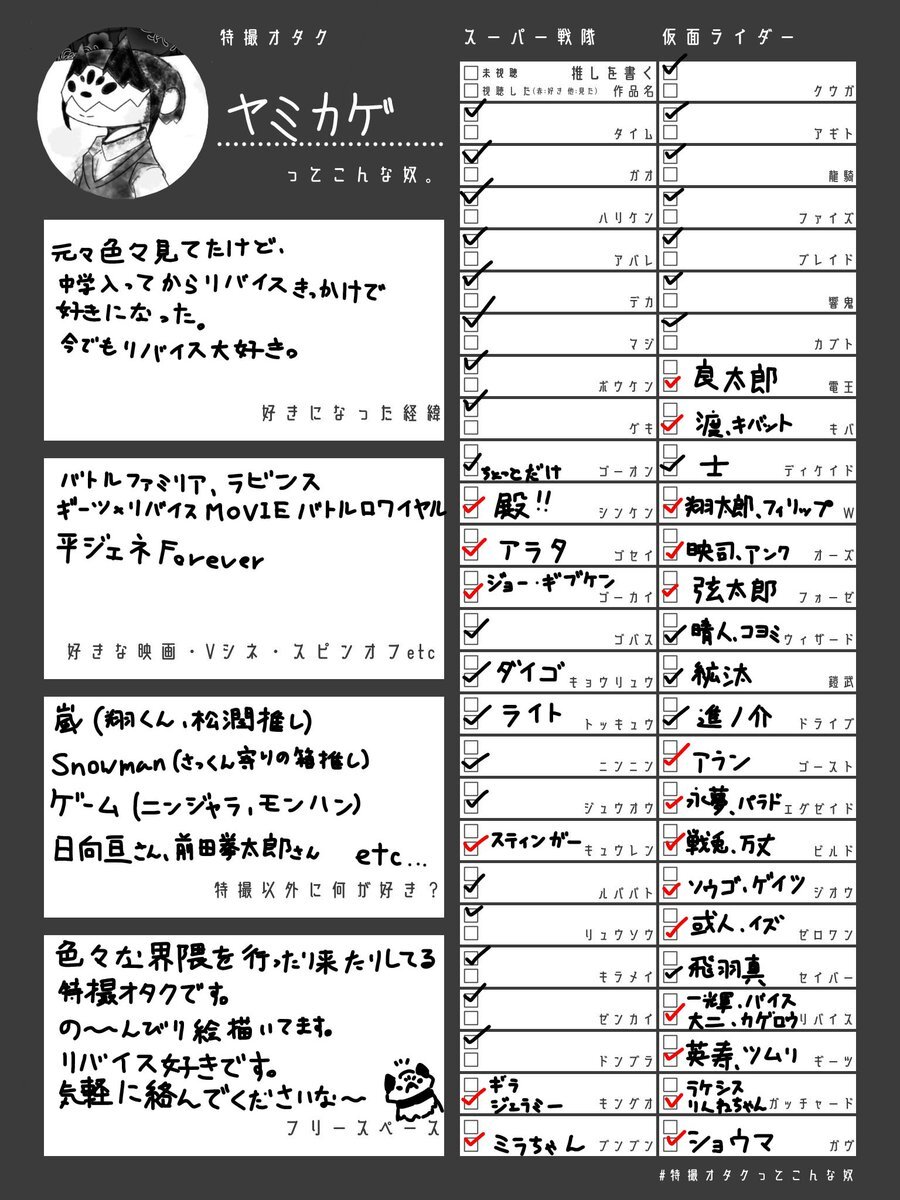 特撮オタク
ヤミカゲ
ってこんな奴。
元々色々見てたけど、
中学入ってからリバイスきっかけで
好きになった。
今でもリバイス大好き。
好きになった経緯
バトルファミリア、ラビンス
ギーツ×リバイスMOVIEバトルロワイヤル
平ジェネForever
好きな映画・Vシネ・スピンオフetc
嵐(翔くん、松潤推し)
Snowman(さっくん寄りの箱推し)
ゲーム(ニンジャラ、モンハン)
日向亘さん、前田拳太郎さん etc...
特撮以外に何が好き?
色々な界隈を行ったり来たりしてる
特撮オタクです。
の〜〜んびり絵描いてます。
リバイス好きです。
気軽に絡んでくださいな〜
フリースペース
スーパー戦隊
未視聴 推しを書く
視聴した(赤:好き 他:見た) 作品名
タイム
ガオ
ハリケン
アバレ
デカ
マジ
ボウケン
ゲキ
ちょっとだけ ゴーオン
殿!! シンケン
アラタ ゴセイ
ジョー・ギブケン
ゴーカイ
ゴバス
ダイゴ キョウリュウ
ライト トッキュウ
ニンニン
ジュウオウ
スティンガー キュウレン
ルパパト
リュウソウ
キラメイ
ゼンカイ
ドンブラ
ギラ
ジェラミー キングオ
ミラちゃん ブンブン
仮面ライダー
クウガ
アギト
龍騎
ファイズ
ブレイド
響鬼
カブト
良太郎 電王
渡、キバット キバ
士 ディケイド
翔太郎、フィリップ W
映司、アンク オーズ
弦太郎 フォーゼ
晴人、コヨミ ウィザード
紘汰 鎧武
進ノ介 ドライブ
アラン ゴースト
永夢、パラド エグゼイド
戦兎、万丈 ビルド
ソウゴ、ゲイツ ジオウ
或人、イズ ゼロワン
飛羽真 セイバー
一輝、バイス
大二、カゲロウ リバイス
英寿、ツムリ ギーツ
ラケシス
りんねちゃん ガッチャード
ショウマ ガヴ
#特撮オタクってこんな奴